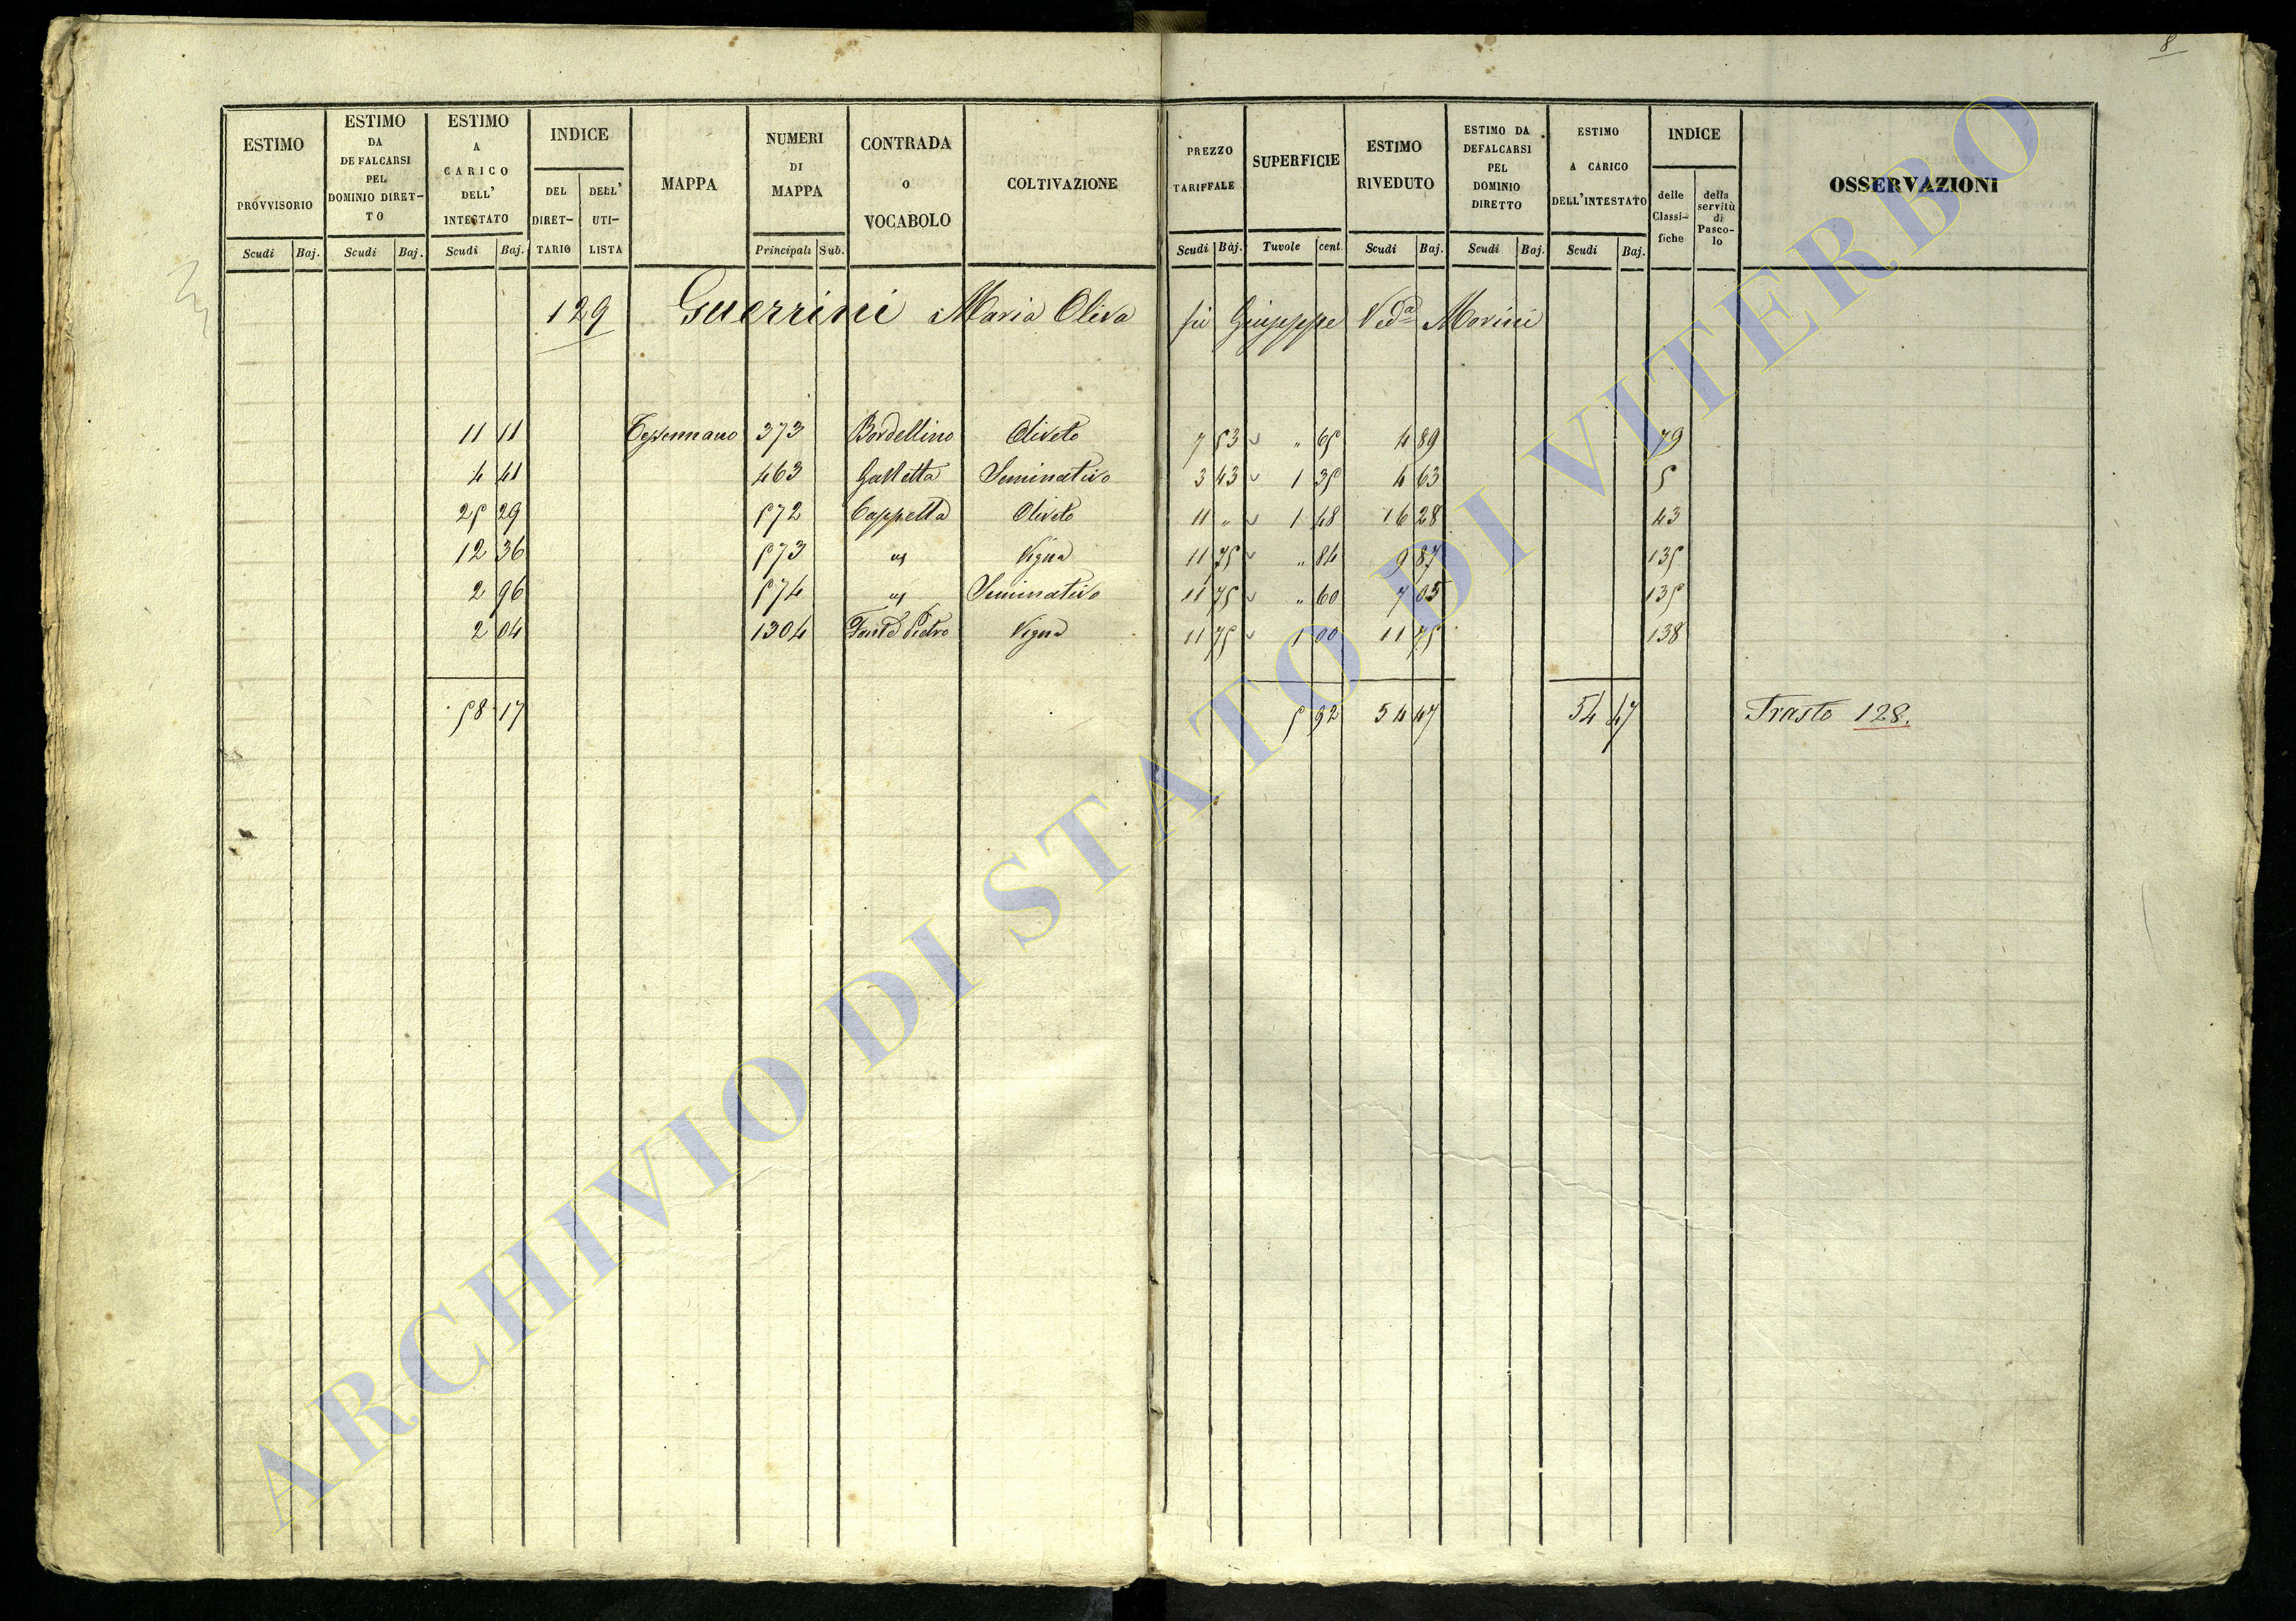 8
ESTIMO PROVVISORIO Scudi Baj.
ESTIMO DA DEFALCARSI PEL DOMINIO DIRETTO Scudi Baj.
ESTIMO A CARICO DELL' INTESTATO Scudi Baj.
INDICE DEL DIRETTARIO DELL' UTILISTA
MAPPA
NUMERI DI MAPPA Principali Sub.
CONTRADA O VOCABOLO
COLTIVAZIONE
PREZZO TARIFFALE Scudi Baj.
SUPERFICIE Tavole cent.
ESTIMO RIVEDUTO Scudi Baj.
ESTIMO DA DEFALCARSI PEL DOMINIO DIRETTO Scudi Baj.
ESTIMO A CARICO DELL'INTESTATO Scudi Baj.
INDICE delle Classifiche della servitù di Pascolo
OSSERVAZIONI
129 Guerrini Maria Oliva fù Giuseppe Ved.a Morini
11 11 373 Bordellino Oliveto 7 53 " 65 4 89 79
4 41 463 Seminativo 3 43 1 35 4 63 5
25 29 572 Cappella Oliveto 11 " 1 48 16 28 43
12 36 573 " Vigna 11 75 " 84 9 87 135
2 96 574 " Seminativo 11 75 " 60 7 05 135
2 04 1304 Pietro Vigna 11 75 1 00 11 75 138
58 17 5 92 54 47 54 47 Trasto 128.
ARCHIVIO DI STATO DI VITERBO